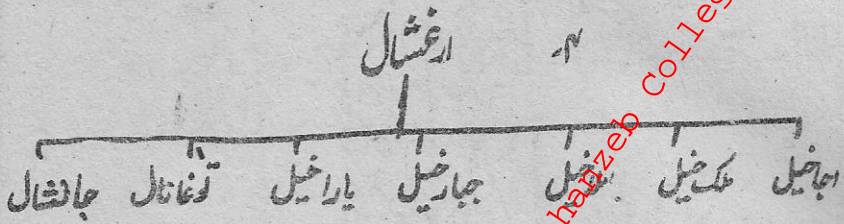 ۴۔ ارغشال
اجاخیل ملک خیل جبارخیل یاراخیل توغانال جانشال
hanzeb Colleg